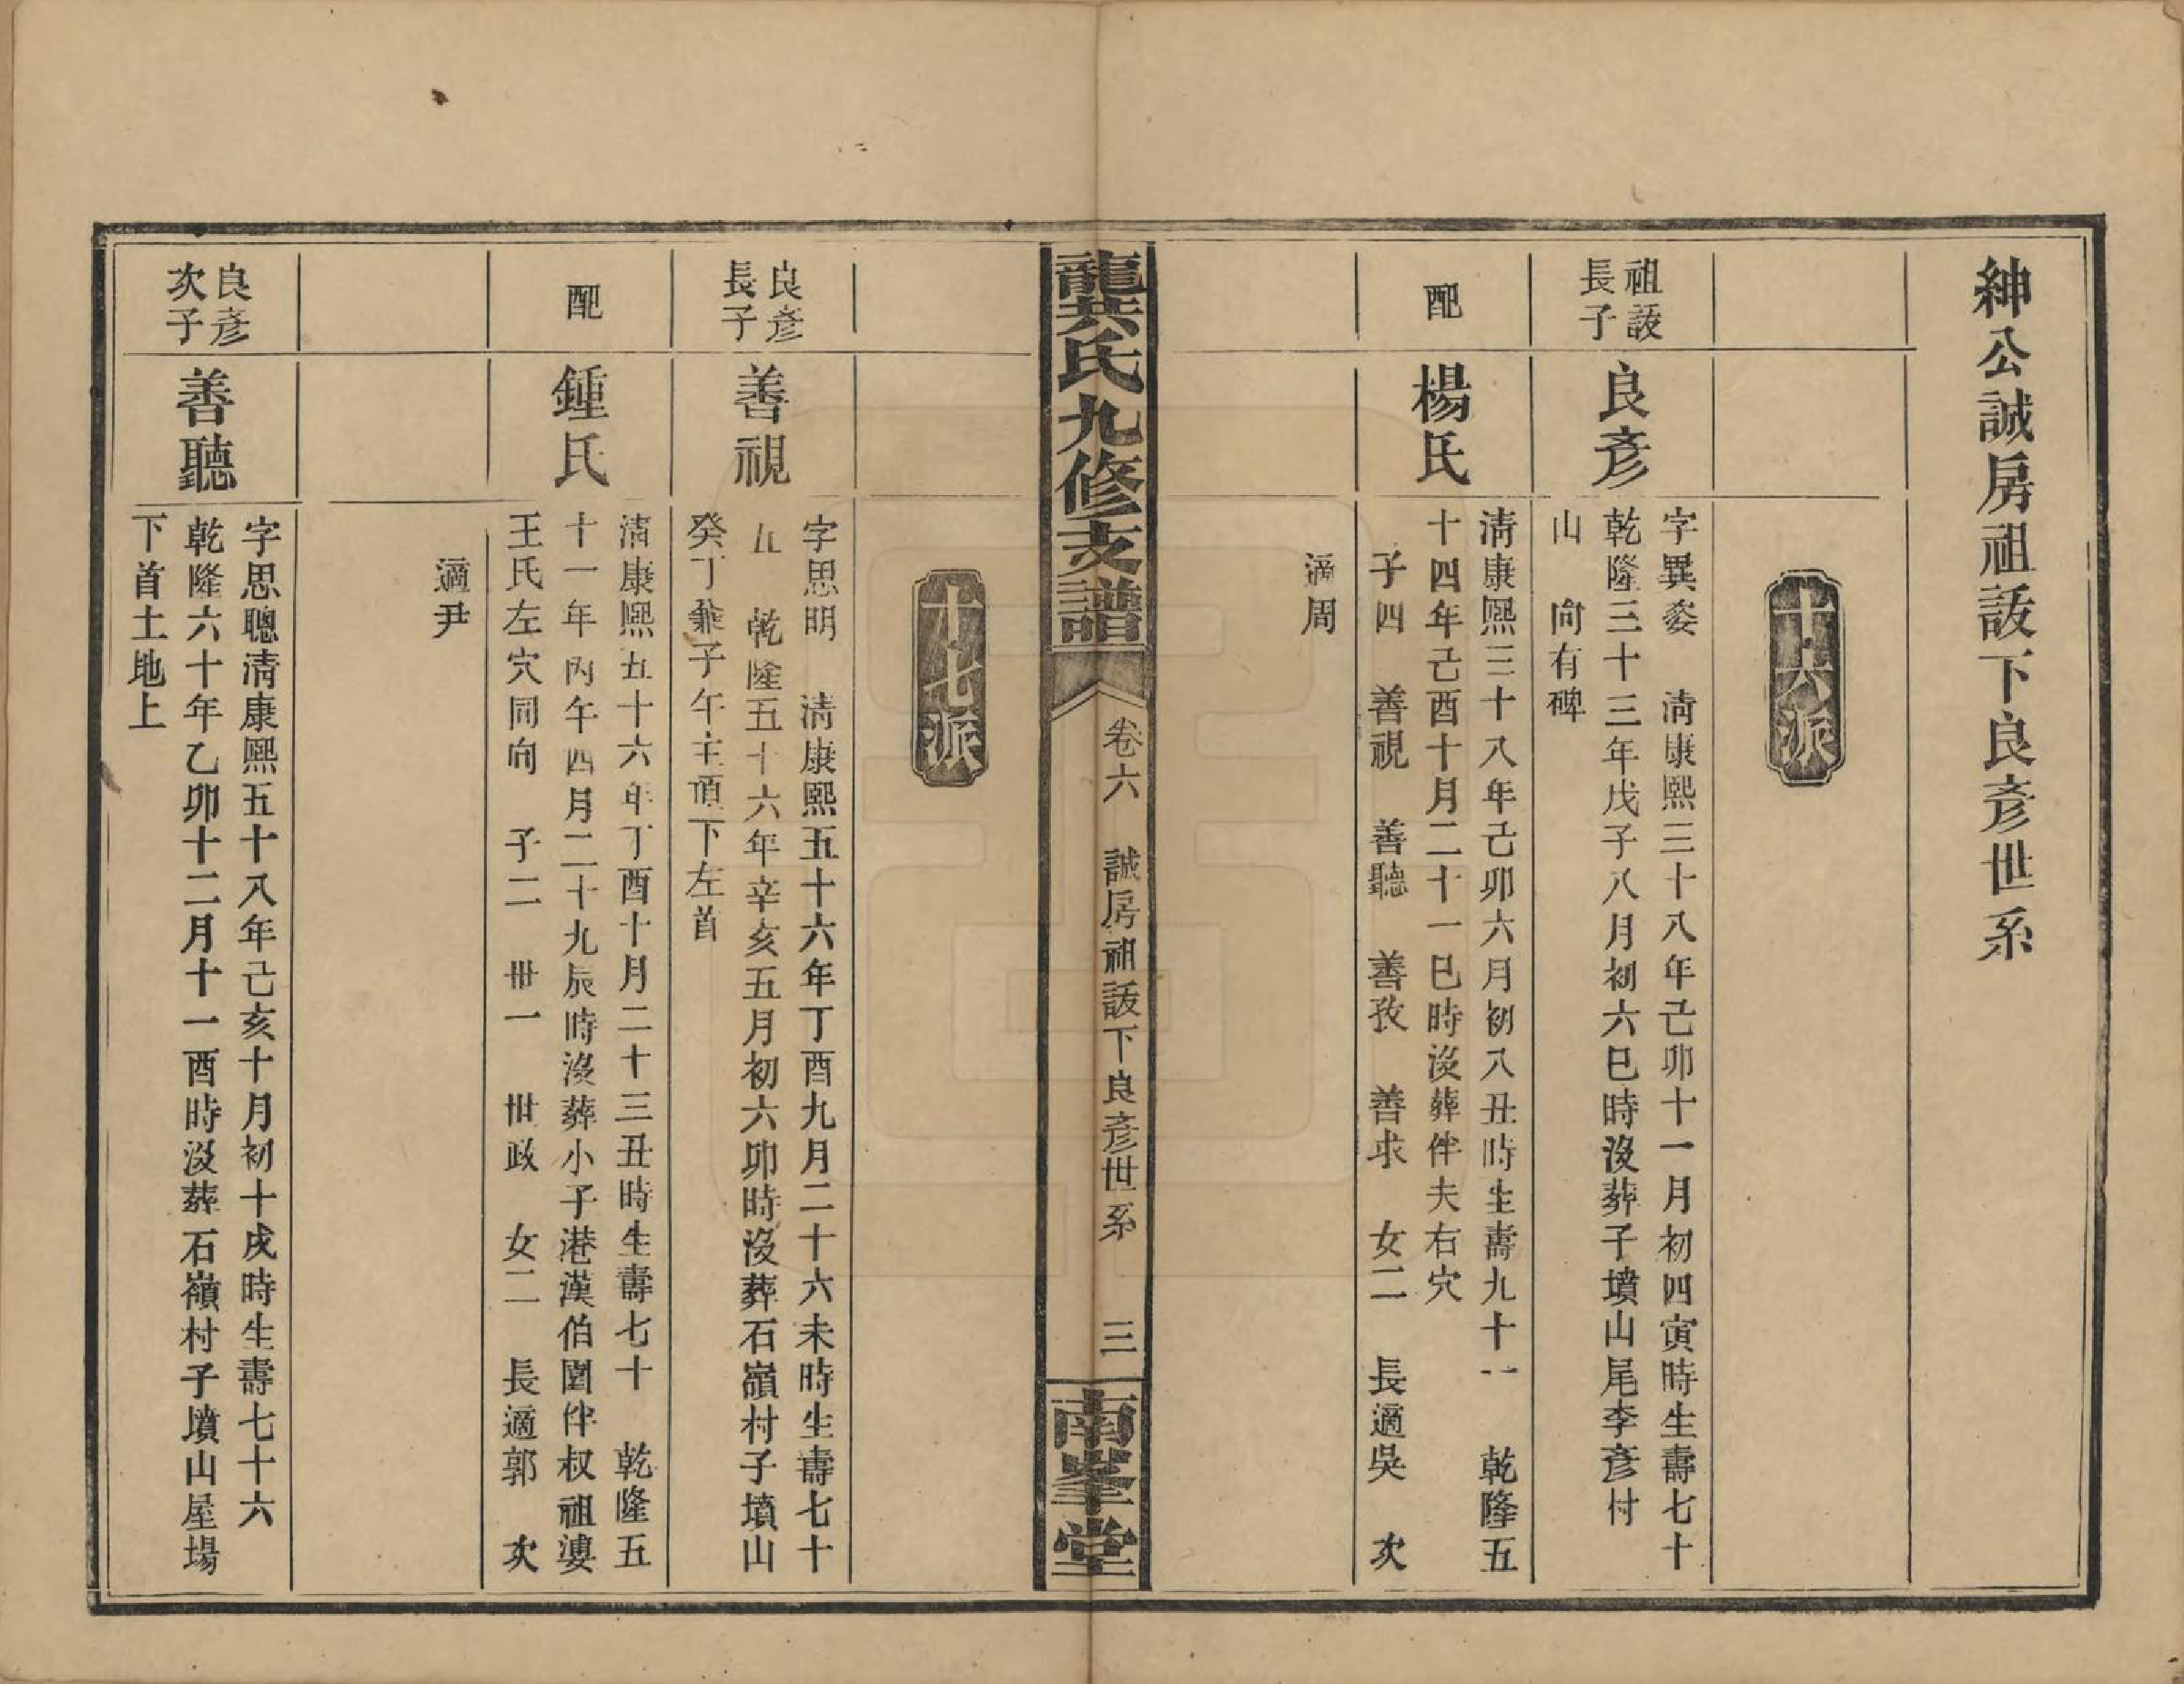 紳公誠房祖諁下良彥世系
十六派
祖諁
長子
良彥
字異姿　清康熙三十八年己卯十一月初四寅時生壽七十
乾隆三十三年戊子八月初六巳時沒葬子墳山尾李彥村
山　向有碑
配
楊氏
清康熙三十八年己卯六月初八丑時生壽九十一　乾隆五
十四年己酉十月二十一巳時沒葬伴夫右穴
子四　善視　善聽　善孜　善求　女二　長適吳　次
適周
龔氏九修支譜
卷六　誠房祖諁下良彥世系　三
南峯堂
十七派
良彥
長子
善視
字思明　清康熙五十六年丁酉九月二十六未時生壽七十
五　乾隆五十六年辛亥五月初六卯時沒葬石嶺村子墳山
癸丁兼子午主項下左首
配
鍾氏
清康熙五十六年丁酉十月二十三丑時生壽七十　乾隆五
十一年丙午四月二十九辰時沒葬小子港漢伯園伴叔祖婆
王氏左穴同向　子二　世一　世政　女二　長適郭　次
適尹
良彥
次子
善聽
字思聰清康熙五十八年己亥十月初十戌時生壽七十六
乾隆六十年乙卯十二月十一酉時沒葬石嶺村子墳山屋場
下首土地上